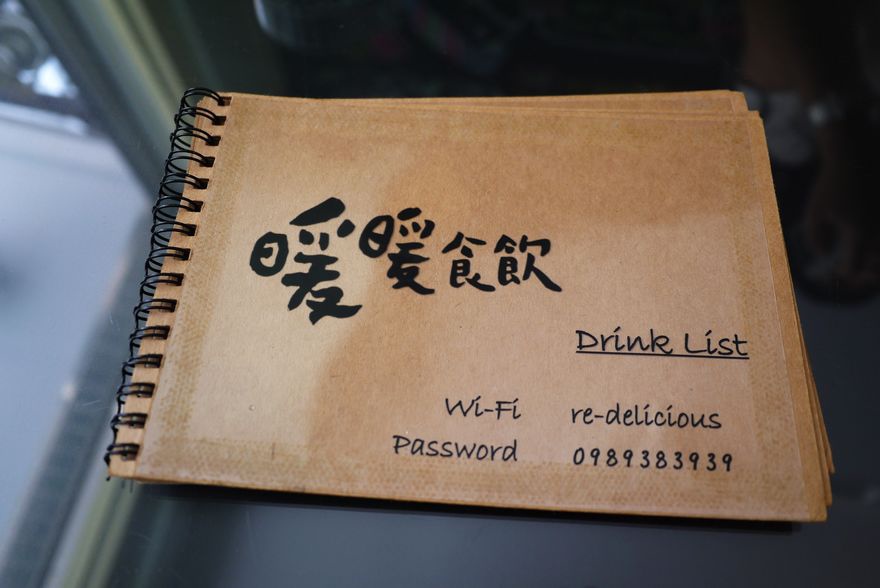 暖暖食飲
Drink List
Wi-Fi re-delicious
Password 0989383939